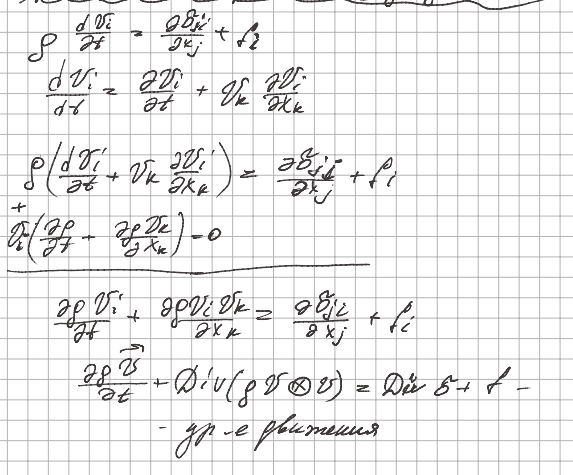 ρ dVi/∂t = ∂σji/∂xj + fi
dVi/dt = ∂Vi/∂t + Vk ∂Vi/∂xk
ρ(dVi/∂t + Vk ∂Vi/∂xk) = ∂σji/∂xj + fi
+
Vi(∂ρ/∂t + ∂ρVk/∂xk) = 0
∂ρVi/∂t + ∂ρViVk/∂xk = ∂σji/∂xj + fi
∂ρV⃗/∂t + Div(ρV⊗V) = Div σ + f -
- ур-е движения